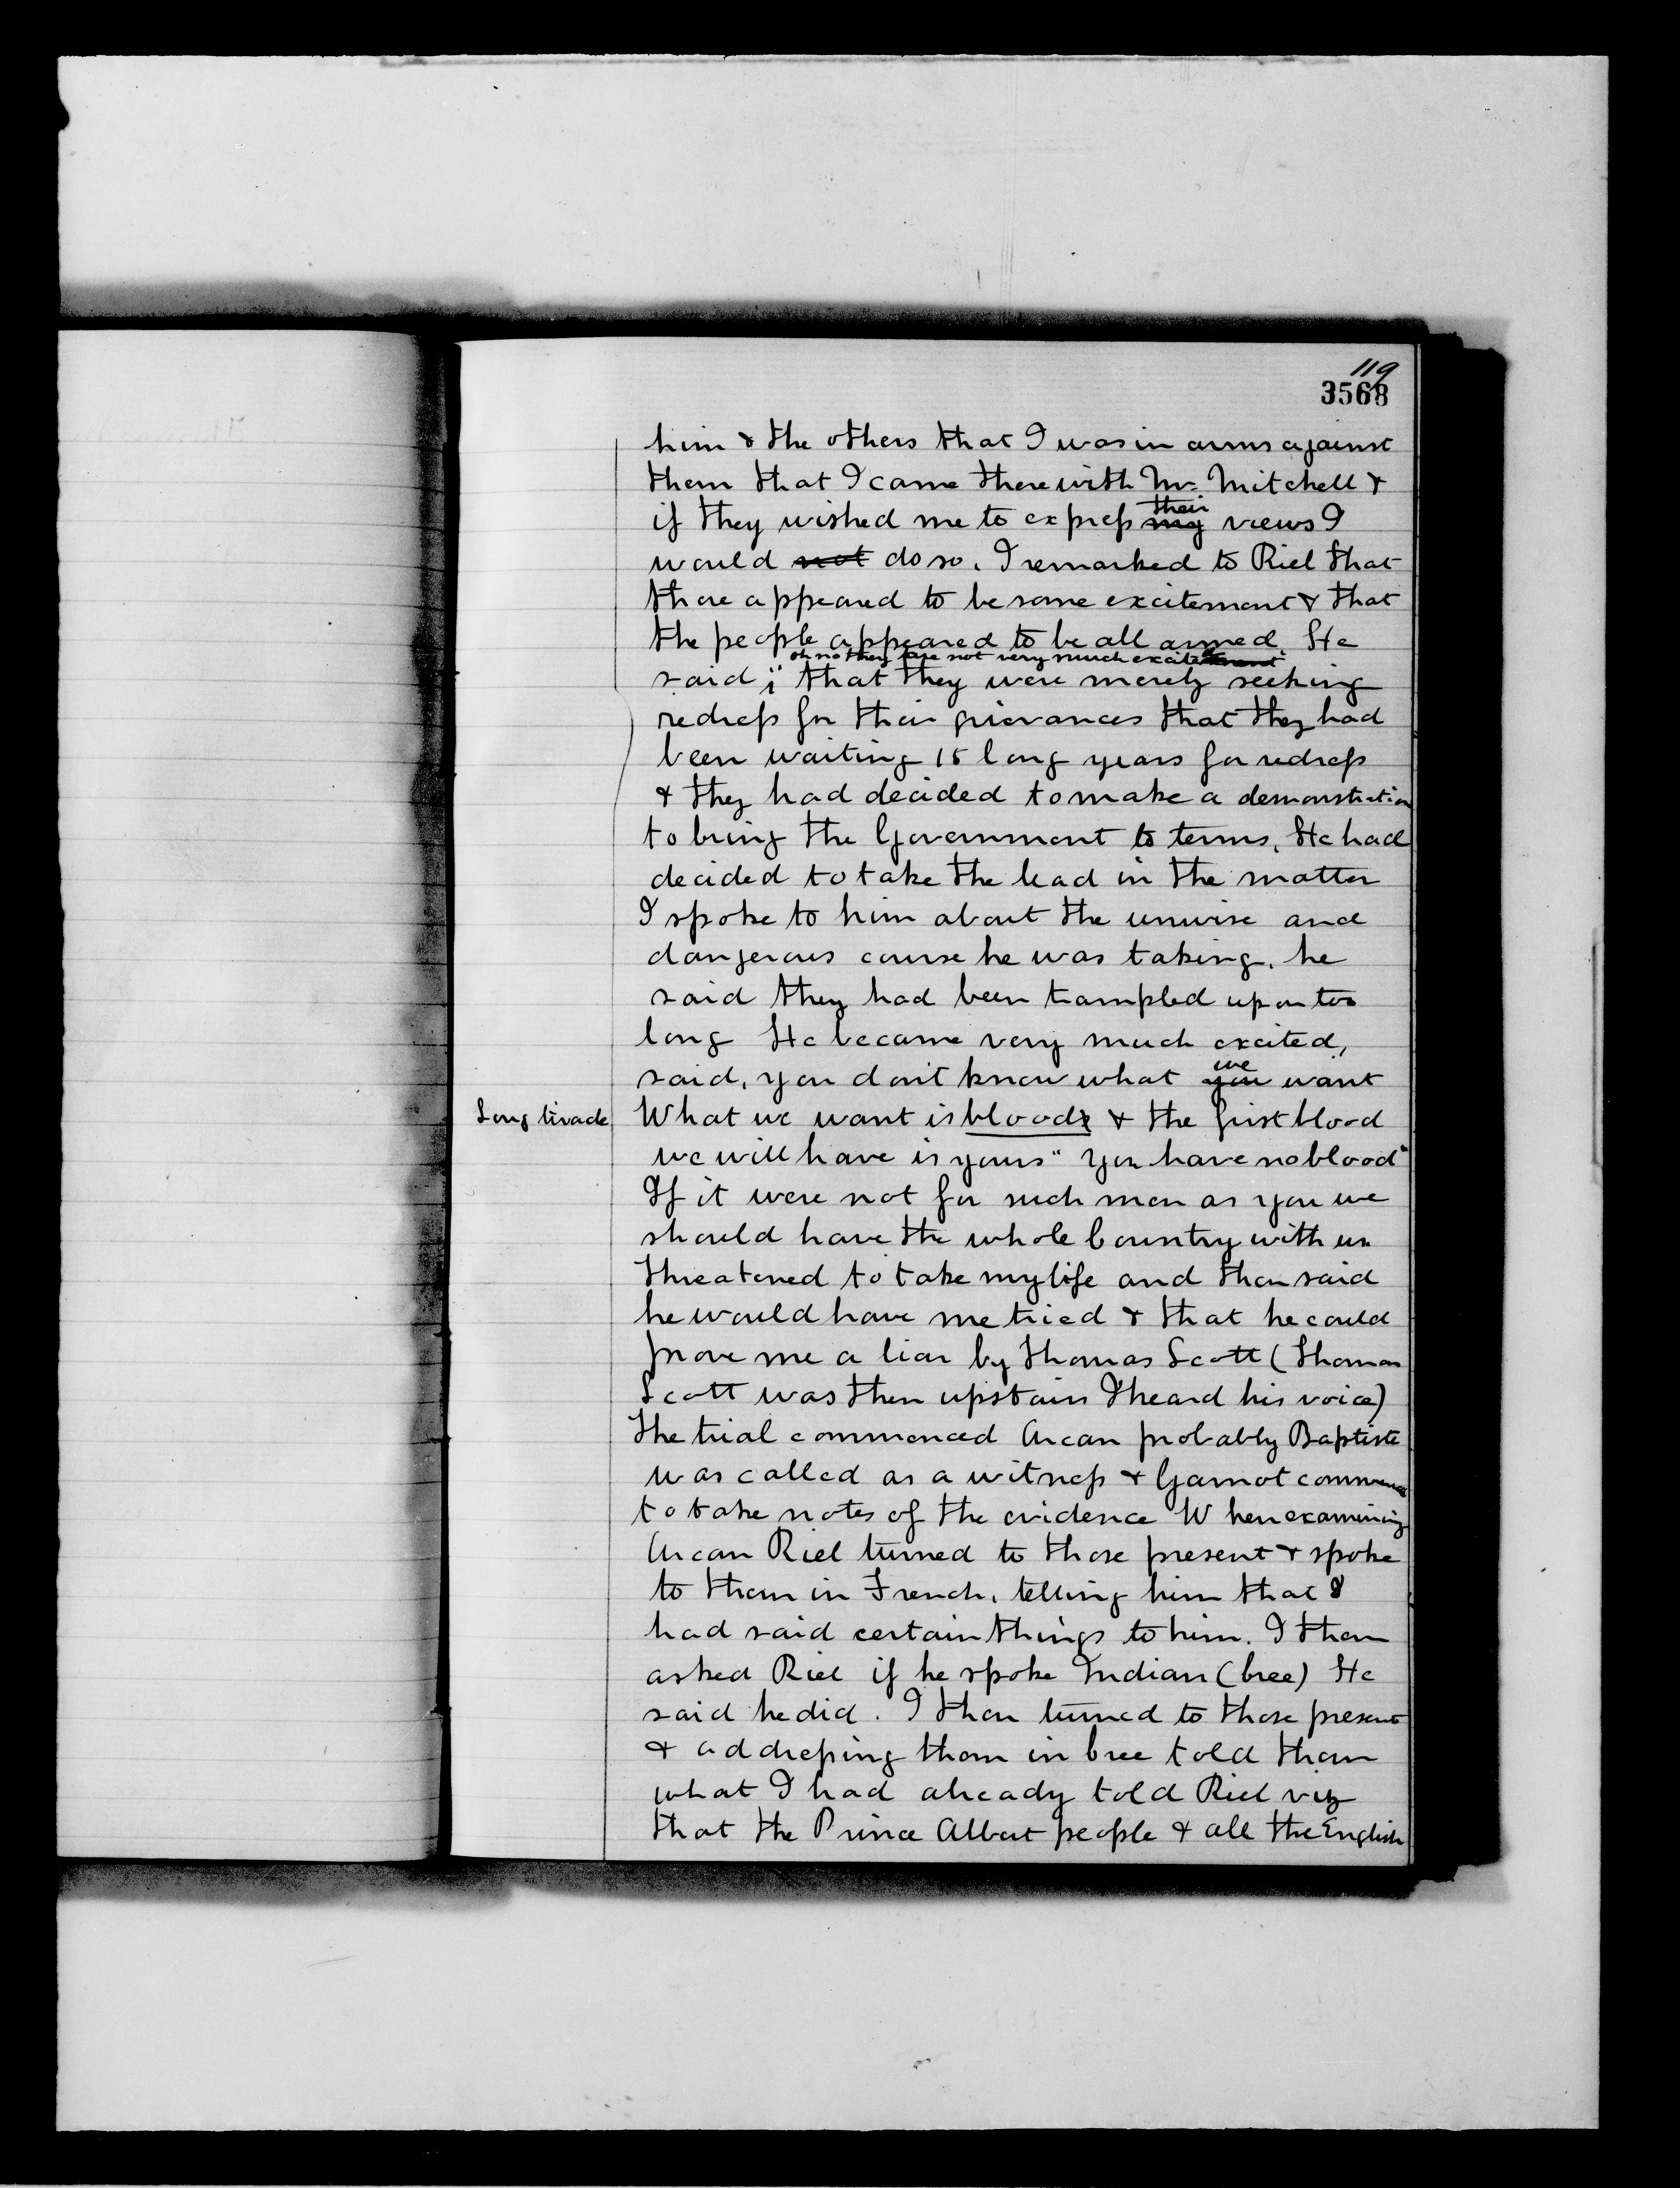 119
3568
him & the others that I was in arms against
them that I came there with Mr. Mitchell &
their
if they wished me to express my views I
would not do so. I remarked to Riel that
there appeared to be some excitement & that
the people appeared to be all armed. He
oh no they are not very much excitement
said " that they were merely seeking
redress for their grievances that they had
been waiting 15 long years for redress
& they had decided to make a demonstration
to bring the Government to terms, He had
decided to take the lead in the matter
I spoke to him about the unwise and
dangerous course he was taking. he
said they had been trampled upon too
long He became very much excited,
we
said, you don't know what you want
Long tirade What we want is blood & the first blood
we will have is yours" You have no blood"
If it were not for such men as you we
should have the whole Country with us
threatened to take my life and then said
he would have me tried & that he could
prove me a liar by Thomas Scott (Thomas
Scott was then upstairs I heard his voice)
The trial commenced Arcan probably Baptiste
was called as a witness & Garnot commenced
to take notes of the evidence When examining
Arcan Riel turned to those present & spoke
to them in French, telling him that I
had said certain things to him. I then
asked Riel if he spoke Indian (Cree) He
said he did. I then turned to those present
& addressing them in Cree told them
what I had already told Riel viz
that the Prince Albert people & all the English